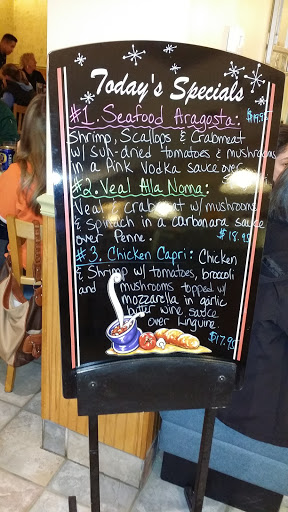 Today's Specials
#1. Seafood Aragosta:
Shrimp, Scallops & Crabmeat
w/ sun-dried tomatoes & mushrooms
in a Pink Vodka sauce over
#2. Veal Alla Noma:
Veal & crabmeat w/ mushrooms
& spinach in a carbonara sauce
over Penne. $18.95
#3. Chicken Capri: Chicken
& Shrimp w/ tomatoes, broccoli
and mushrooms topped w/
mozzarella in garlic
butter wine sauce
over Linguine.
$17.95